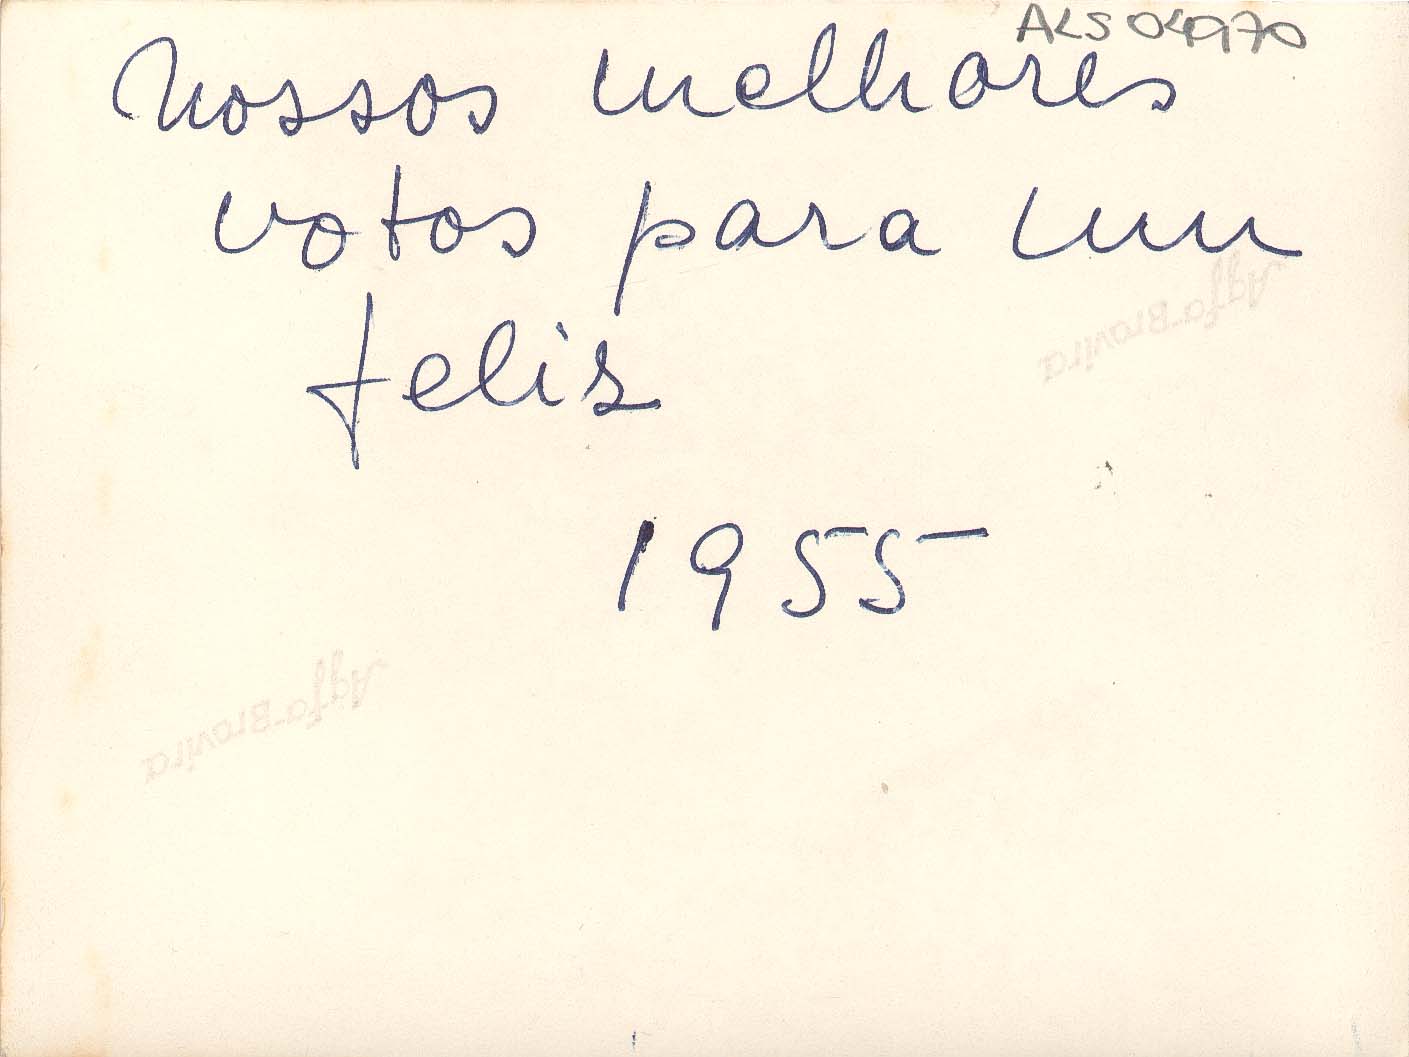 ALS 04970
Nossos melhores
votos para um
feliz
1955
Agfa-Brovira
Agfa-Brovira